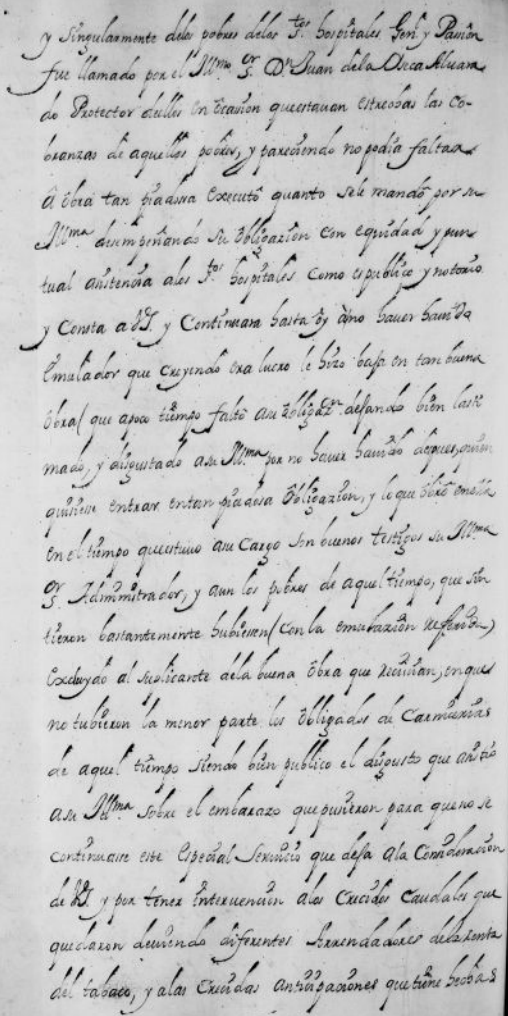 y singularmente delos pobres delos s.tos hospitales Gen.l y Pasion
fue llamado por el Ill.mo s.or D.n Juan dela Alvara
do Protector dellos en ocasion que estauan estrechas las co-
branzas de aquellos pobres, y pareciendo no podia faltar
a obra tan piadossa executò quanto sele mandò por su
Ill.ma desempeñando su obligazion con equidad y pun
tual asistencia alos s.tos hospitales como es publico y notorio
y Consta a VI. y Continuara hasta oy à no hauer hauido
emulador que creyendo era lucro le hizo baja en tan buena
obra (que a poco tiempo faltò a su obligaz.on dejando bien lasti
mado, y disgustado a su Ill.ma por no hauer hauido despues, quien
quisiesse entrar en tan piadosa obligazion, y lo que obrò
en el tiempo que estuuo a su Cargo son buenos testigos su Ill.ma
s.or Administrador, y aun los pobres de aquel tiempo, que sin
tieron bastantemente hubiessen (con la emulazion referida)
excluydo al suplicante dela buena obra que reciuian, en que
no tubieron la menor parte los obligados de Carnicerias
de aquel tiempo siendo bien publico el disgusto que asistio
a su Ill.ma sobre el embarazo que pusieron para que no se
continuasse este especial seruicio que deja ala Consideracion
de VI. y por tener interuencion alos Crecidos Caudales que
quedaron deuiendo diferentes Arrendadores dela renta
del tabaco, y alas Crecidas anticipaciones que tiene hechas